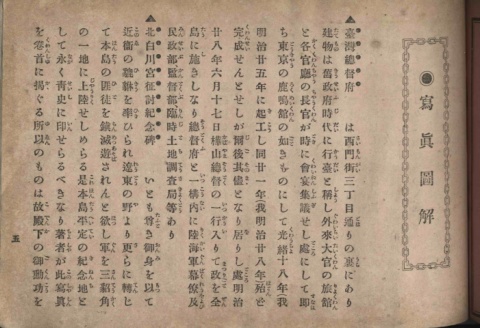 ●寫眞圖解
▲臺灣總督府　は西門街三丁目通りの裏にあり
建物は舊政府時代に行臺と稱し外來大官の旅館
と各官廳の長官が時に會宴集議せし處にして即
ち東京の鹿鳴館の如きものにして光緒十八年我
明治廿五年に起工し同廿一年(我明治廿八年)殆と
完成せんとせしが爾後其儘となり居りし處明治
廿八年六月十七日樺山總督の一行入りて政を全
島に施きしなり總督府と一構内に陸海軍幕僚及
民政部監督部臨時土地調査局等あり
▲北白川宮征討紀念碑　いとも尊き御身を以て
近衞の貔貅を率ひられ遼東の野より更らに轉し
て本島の匪徒を鎮滅遊されんと欲し軍を三貂角
の一地に上陸せしめらる是本島平定の紀念地と
して永く靑史に印せらるべきなり著者が此寫眞
を卷首に揭ぐる所以のものは故殿下の御勳功を
五